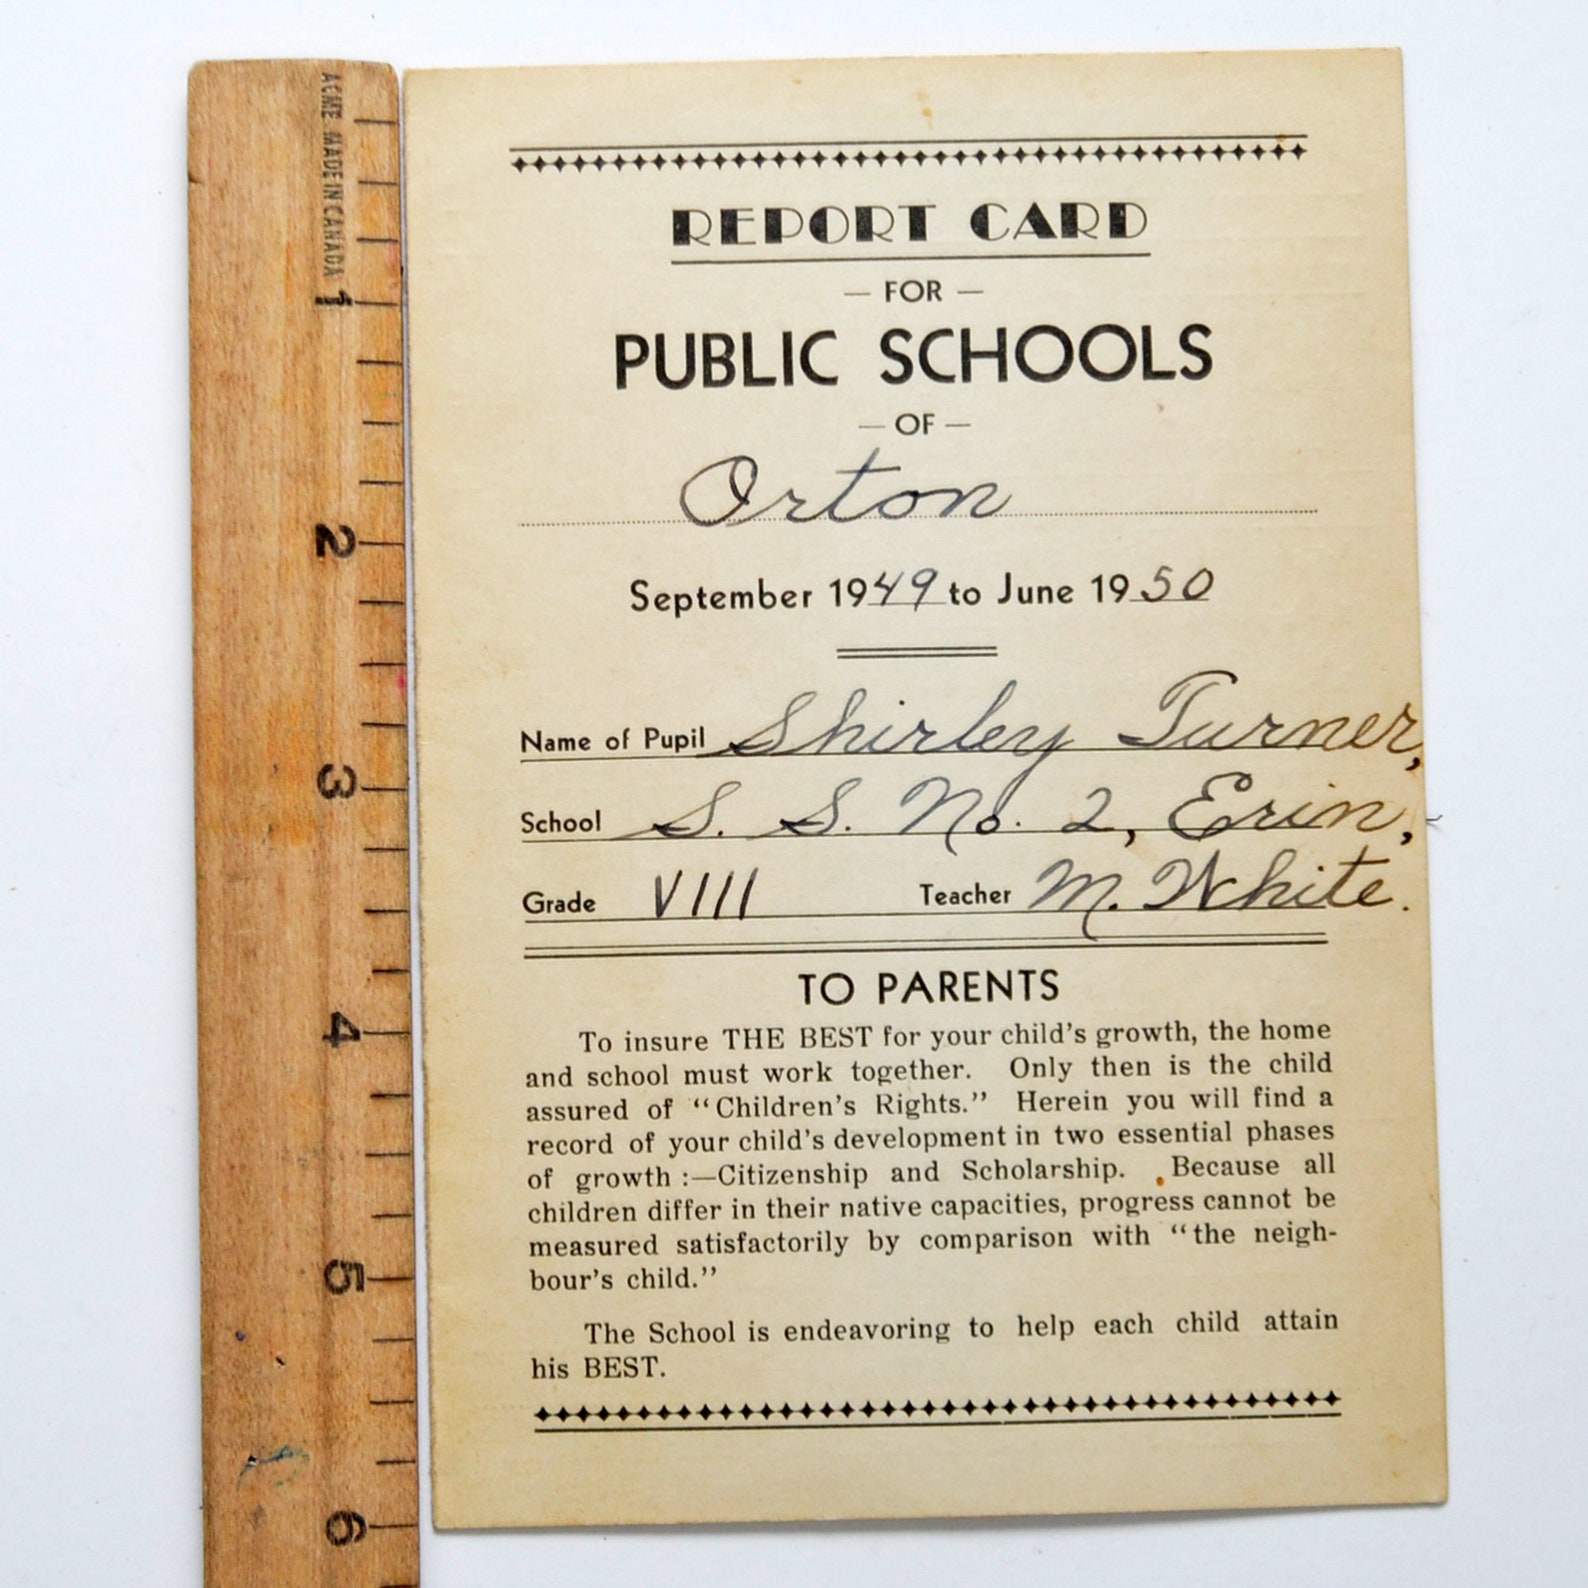 ACME MADE IN CANADA
1
2
3
4
5
6
REPORT CARD
— FOR —
PUBLIC SCHOOLS
— OF —
Orton
September 1949 to June 1950
Name of Pupil Shirley Turner,
School S. S. No. 2, Erin,
Grade VIII Teacher M. White.
TO PARENTS
To insure THE BEST for your child's growth, the home
and school must work together. Only then is the child
assured of "Children's Rights." Herein you will find a
record of your child's development in two essential phases
of growth :—Citizenship and Scholarship. Because all
children differ in their native capacities, progress cannot be
measured satisfactorily by comparison with "the neigh-
bour's child."
The School is endeavoring to help each child attain
his BEST.